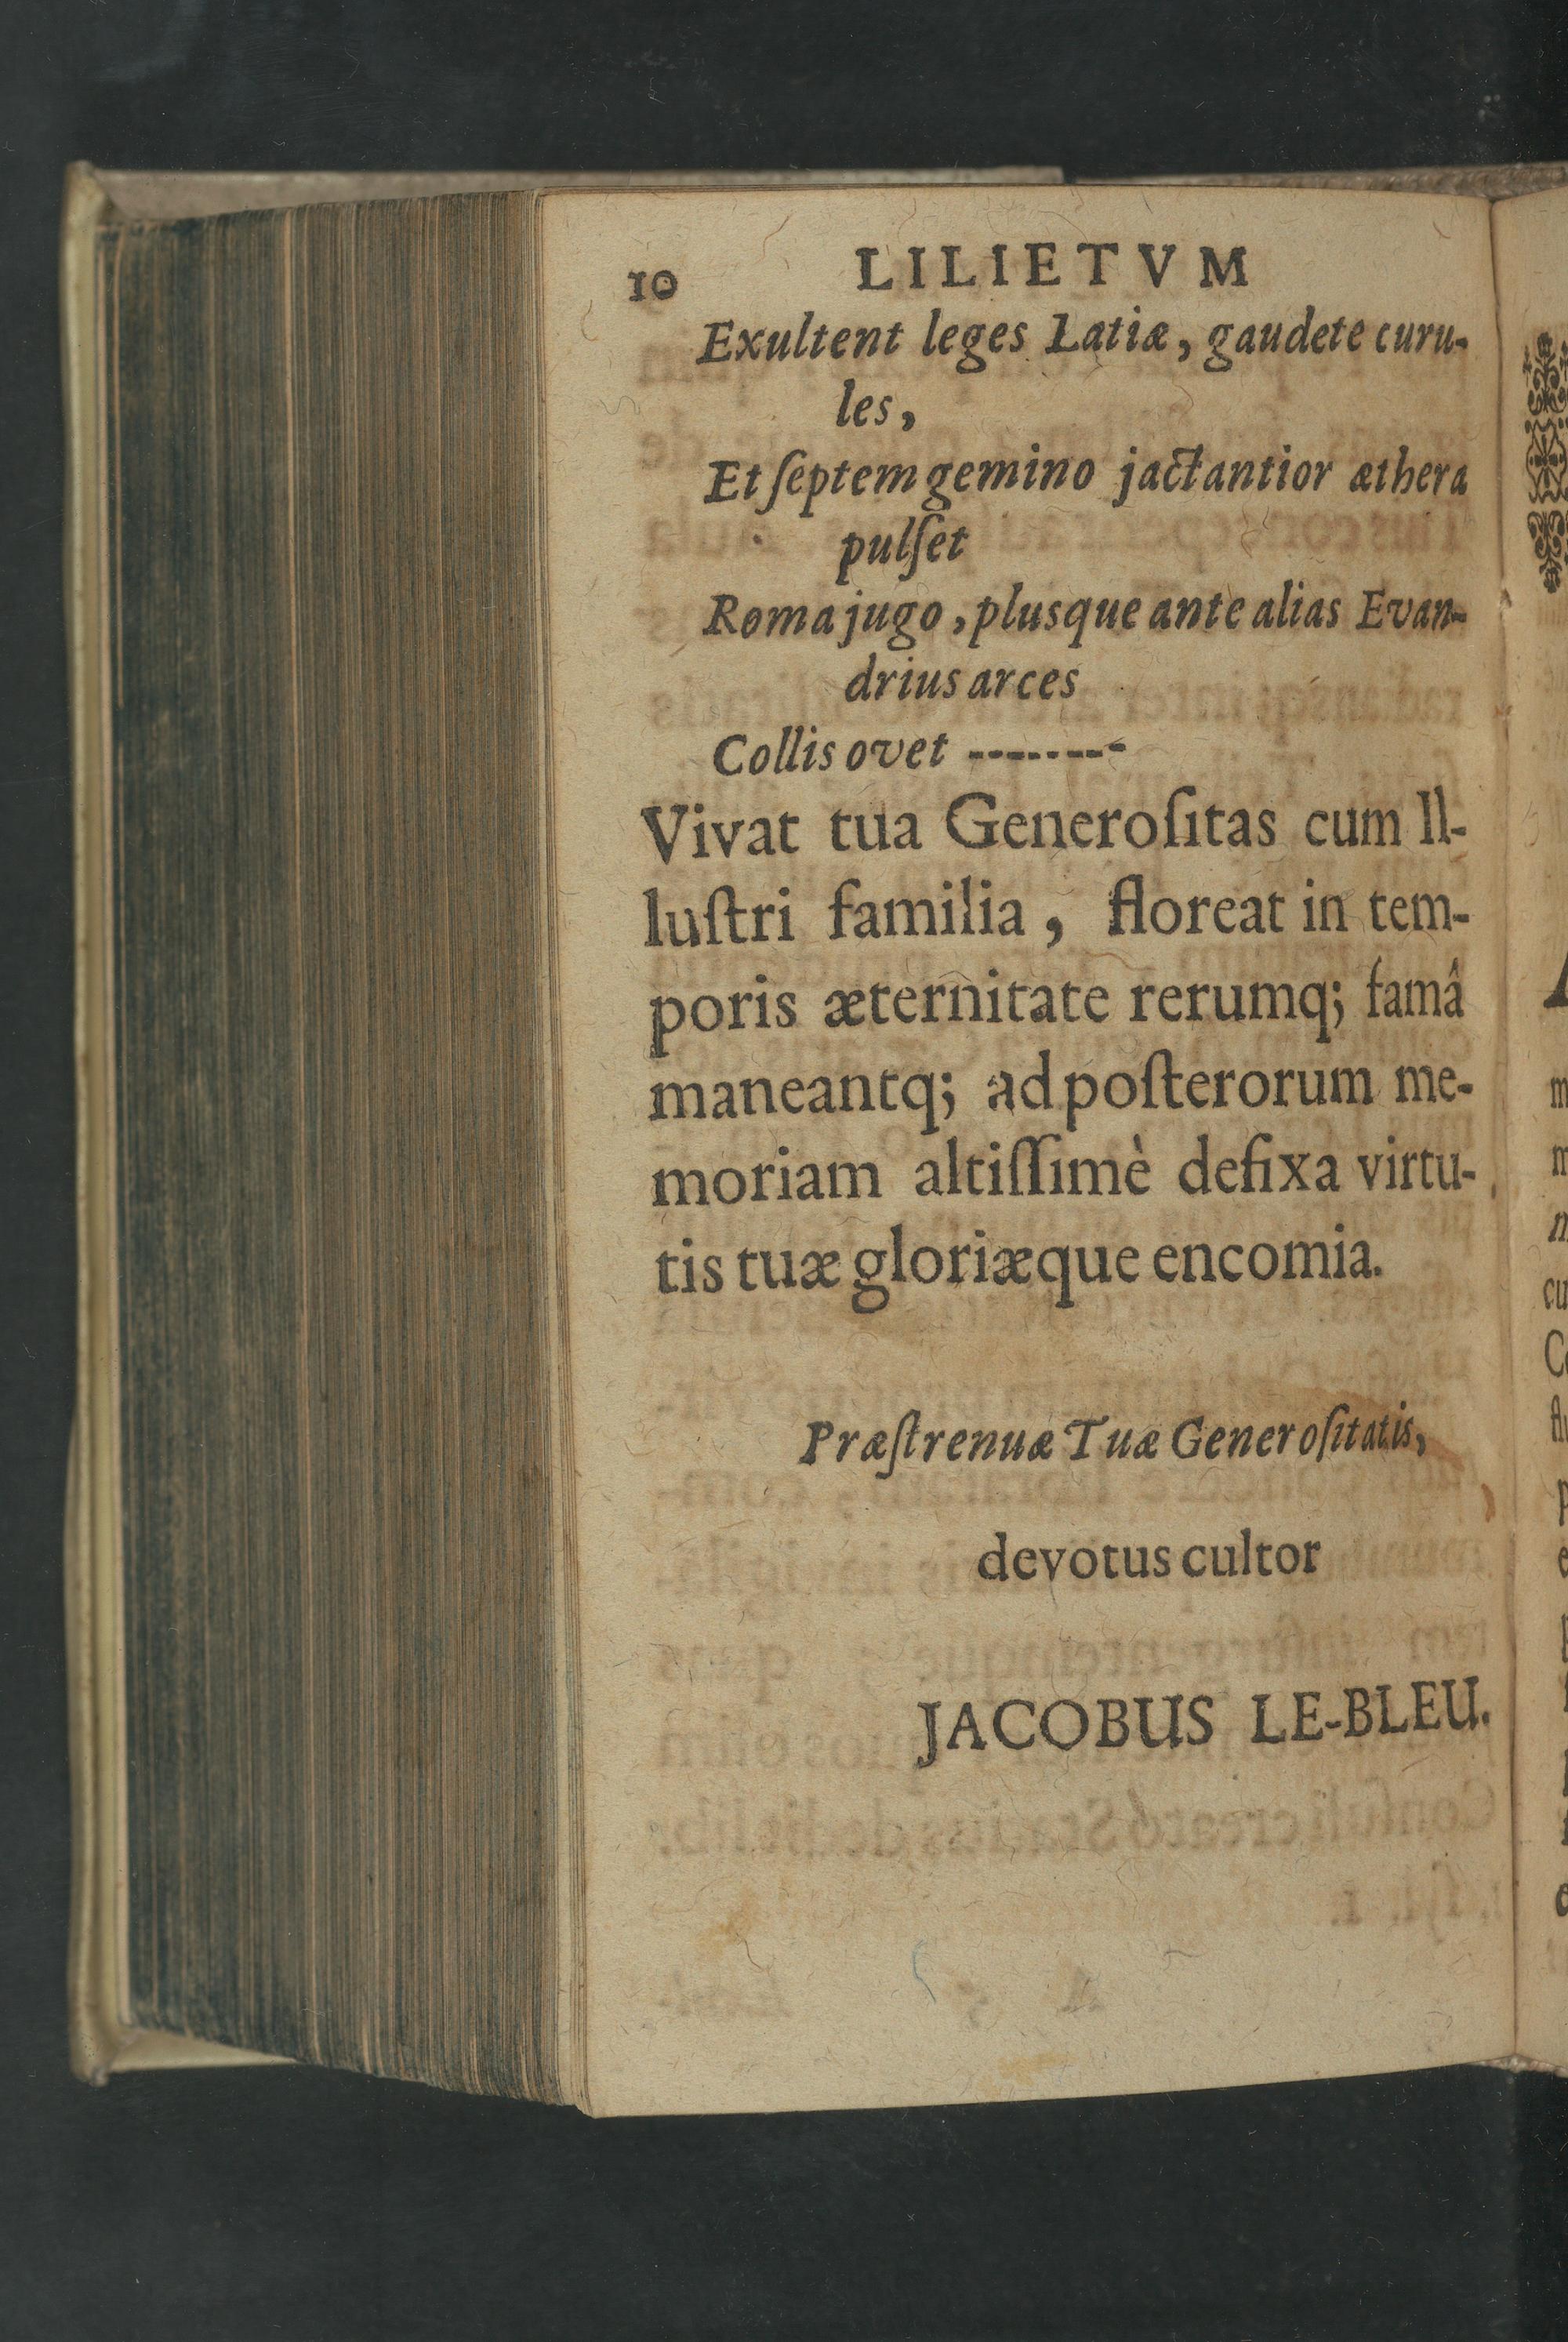 10 LILIETVM
Exultent leges Latiæ, gaudete curu-
les,
Et ſeptem gemino jactantior æthera
pulſet
Roma jugo, plusque ante alias Evan-
drius arces
Collis ovet --------
Vivat tua Generoſitas cum Il-
luſtri familia, floreat in tem-
poris æternitate rerumq; famâ
maneantq; ad poſterorum me-
moriam altiſſimè defixa virtu-
tis tuæ gloriæque encomia.
Præſtrenuæ Tuæ Generoſitatis,
devotus cultor
JACOBUS LE-BLEU.